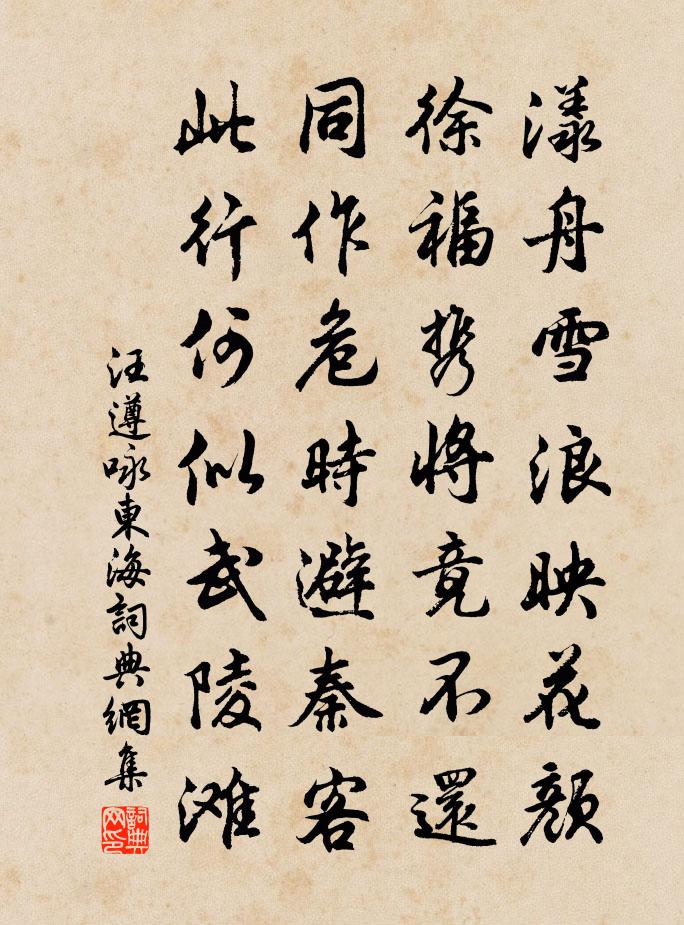 漾舟雪浪映花顏
徐福携將竟不還
同作危時避秦客
此行何似武陵滩
汪遵咏東海詞典網集
詞典网印